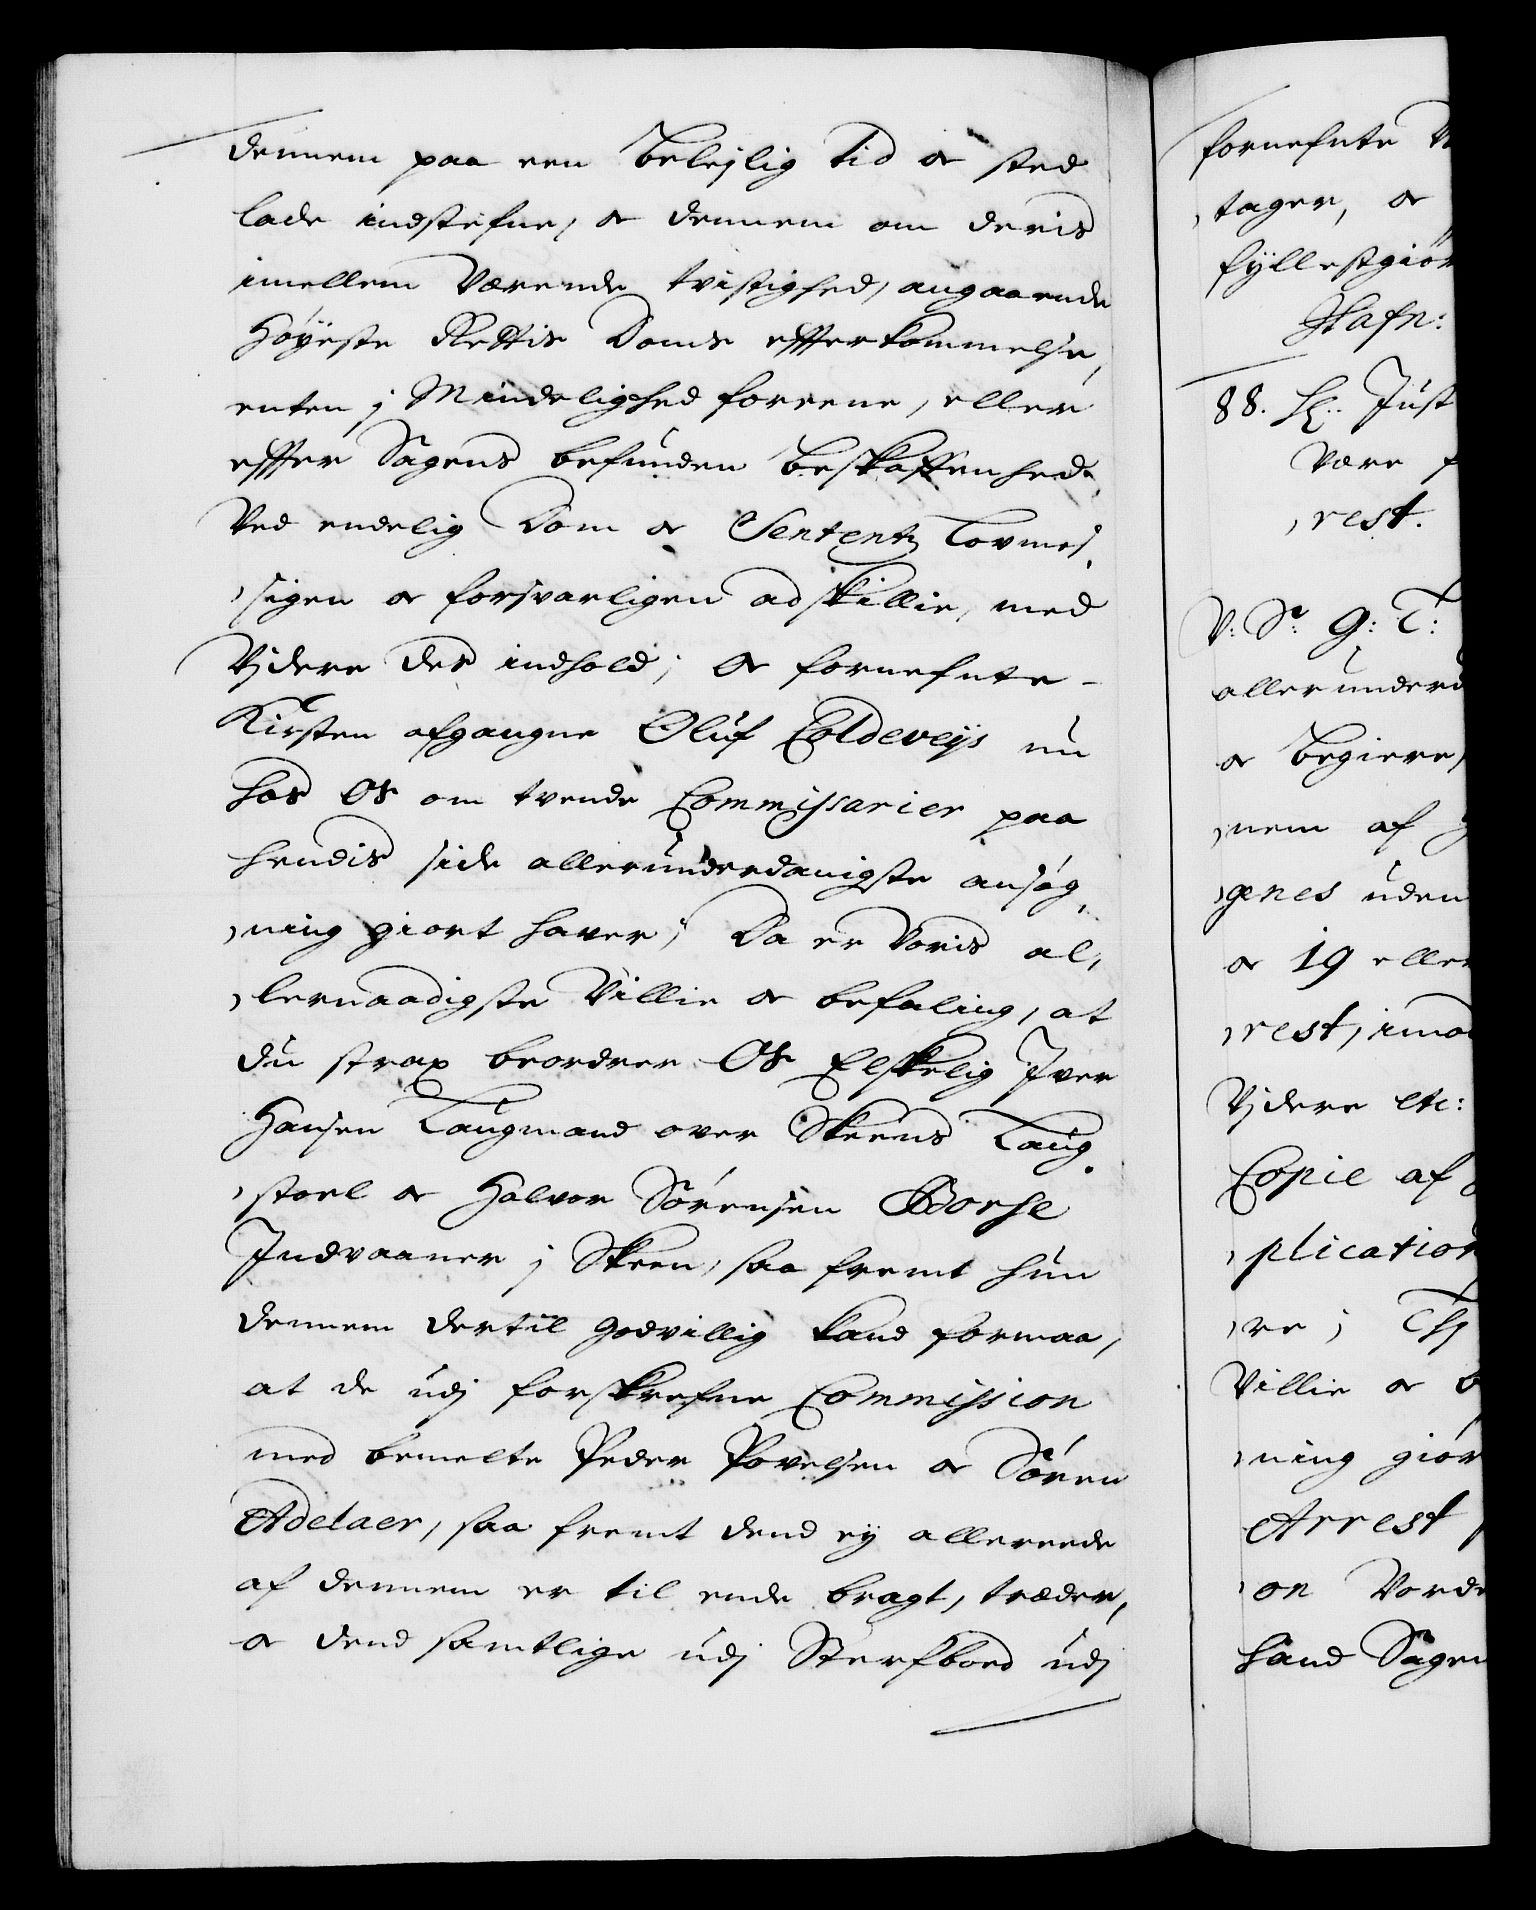 dennem paa een beleylig tid oc sted
lade indstefne, oc dennem om deris
imellem værende tvistighed, angaaende
Høyeste Rettis Doms efterkommelse,
enten j Mindelighed foreene, eller
efter Sagens befunden beskaffenhed,
Ved endelig Dom oc Sententz Lovmes,
,sigen oc forsvarligen adskillie, med
Vjdere des indhold; Oc fornefnte
Kirsten afgangne Oluf Coldeveys nu
hos Os om tvende Commissarier paa
hendis side allerunderdanigste ansøg,
,ning giort haver; Da er Voris al,
,lernaadigste Villie oc befaling, at
du strax beordrer Os Elskelig Iver
Hansen Laugmand over Skeens Laug,
,stoel oc Halvor Sørensen Borse
Indvaaner j Skeen, saa fremt hun
dennem dertil godvillig kand formaa,
at de udj forskrefne Commission
med bemelte Peder Povelsen oc Søren
Adelaer, saa fremt dend ey allereede
af dennem er til ende bragt, træder,
oc dend samtlige udj Sterfboed udj
fornefnte
,tager, oc
fyllestgiør
Hafn:
88. Hr: Just
være
,rest.
V: Sr: G: T:
allerunder
oc begiere,
,nem af
,genes uden
oc 19 eller
,rest, imod
Vjdere etc:
Copie af
,plication
,re; Thj
Villie oc b
,ning giør
Arrest
,on Vorde
hand Sagen